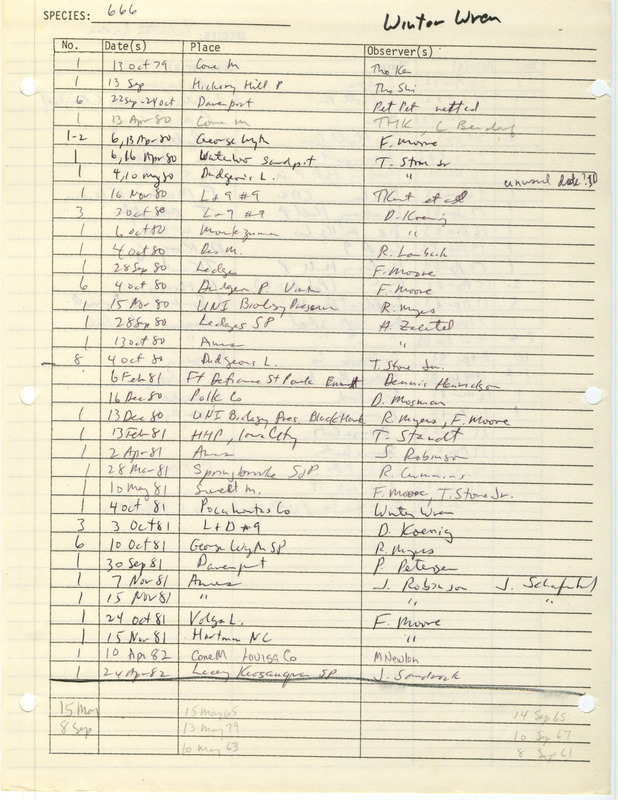 SPECIES: 666 Winter Wren
No. Date(s) Place Observer(s)
1 13 Oct 79 Cone M Tho Ken
1 13 Sep Hickory Hill P Tho Shi
6 22 Sep-24 Oct Davenport Pet Pet netted
1 13 Apr 80 Cone M TMK, C Bendorf
1-2 6,13 Apr 80 George Wyth F. Moore
1 6,16 Apr 80 Waterloo Sandpit T. Stone Jr
1 4,10 May 80 Dudgeons L. " unusual date? JD
1 16 Nov 80 L+9 #9 TKent et al
3 3 Oct 80 L-9 #9 D. Koenig
1 6 Oct 80 Montezuma "
1 4 Oct 80 Des M. R. Lambeth
1 28 Sep 80 Ledges F. Moore
6 4 Oct 80 Dudgeon P F. Moore
1 15 Nov 80 UNI Biology Preserve R. Myers
1 28 Sep 80 Ledges SP H. Zaletel
1 13 Oct 80 Ames "
8 4 Oct 80 Dudgeons L. T. Stone Jr.
6 Feb 81 Ft Defiance St Park Emmet Dennis Henrickson
16 Dec 80 Polk Co D. Mosman
1 13 Dec 80 UNI Biology Pres. Black Hawk R. Myers, F. Moore
1 13 Feb 81 HHP, Iowa City T. Staudt
1 2 Apr 81 Ames J. Robinson
1 28 Mar 81 Springbrook SP R. Cummins
1 10 May 81 Sweet M. F. Moore, T. Stone Jr.
1 4 Oct 81 Pocahontas Co Winter Wren
3 3 Oct 81 L+D #9 D. Koenig
6 10 Oct 81 George Wyth SP R. Myers
1 30 Sep 81 Davenport P. Petersen
1 7 Nov 81 Ames J. Robinson J. Schaufenbuel
1 15 Nov 81 " " "
1 24 Oct 81 Volga L. F. Moore
1 15 Nov 81 Hartman NC "
1 10 Apr 82 Cone M Louisa Co M Newlon
1 24 Apr 82 Lacey Keosauqua SP J. Sandrock
15 May 15 May 65 14 Sep 65
8 Sep 13 May 79 10 Sep 67
10 May 63 8 Sep 61